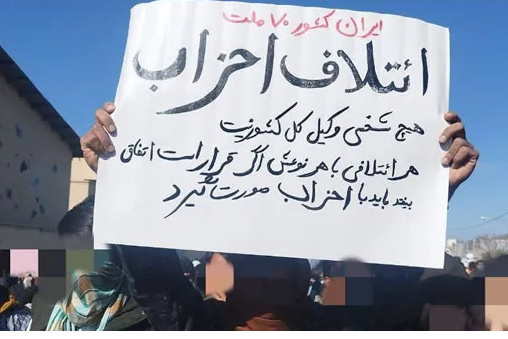 ایران کشور ۷۰ ملت
ائتلاف احزاب
هیچ شخصی وکیل کل کشور نیست
هر ائتلافی با هر نوعش اگر قرار است اتفاق
بیفتد باید با احزاب صورت گیرد